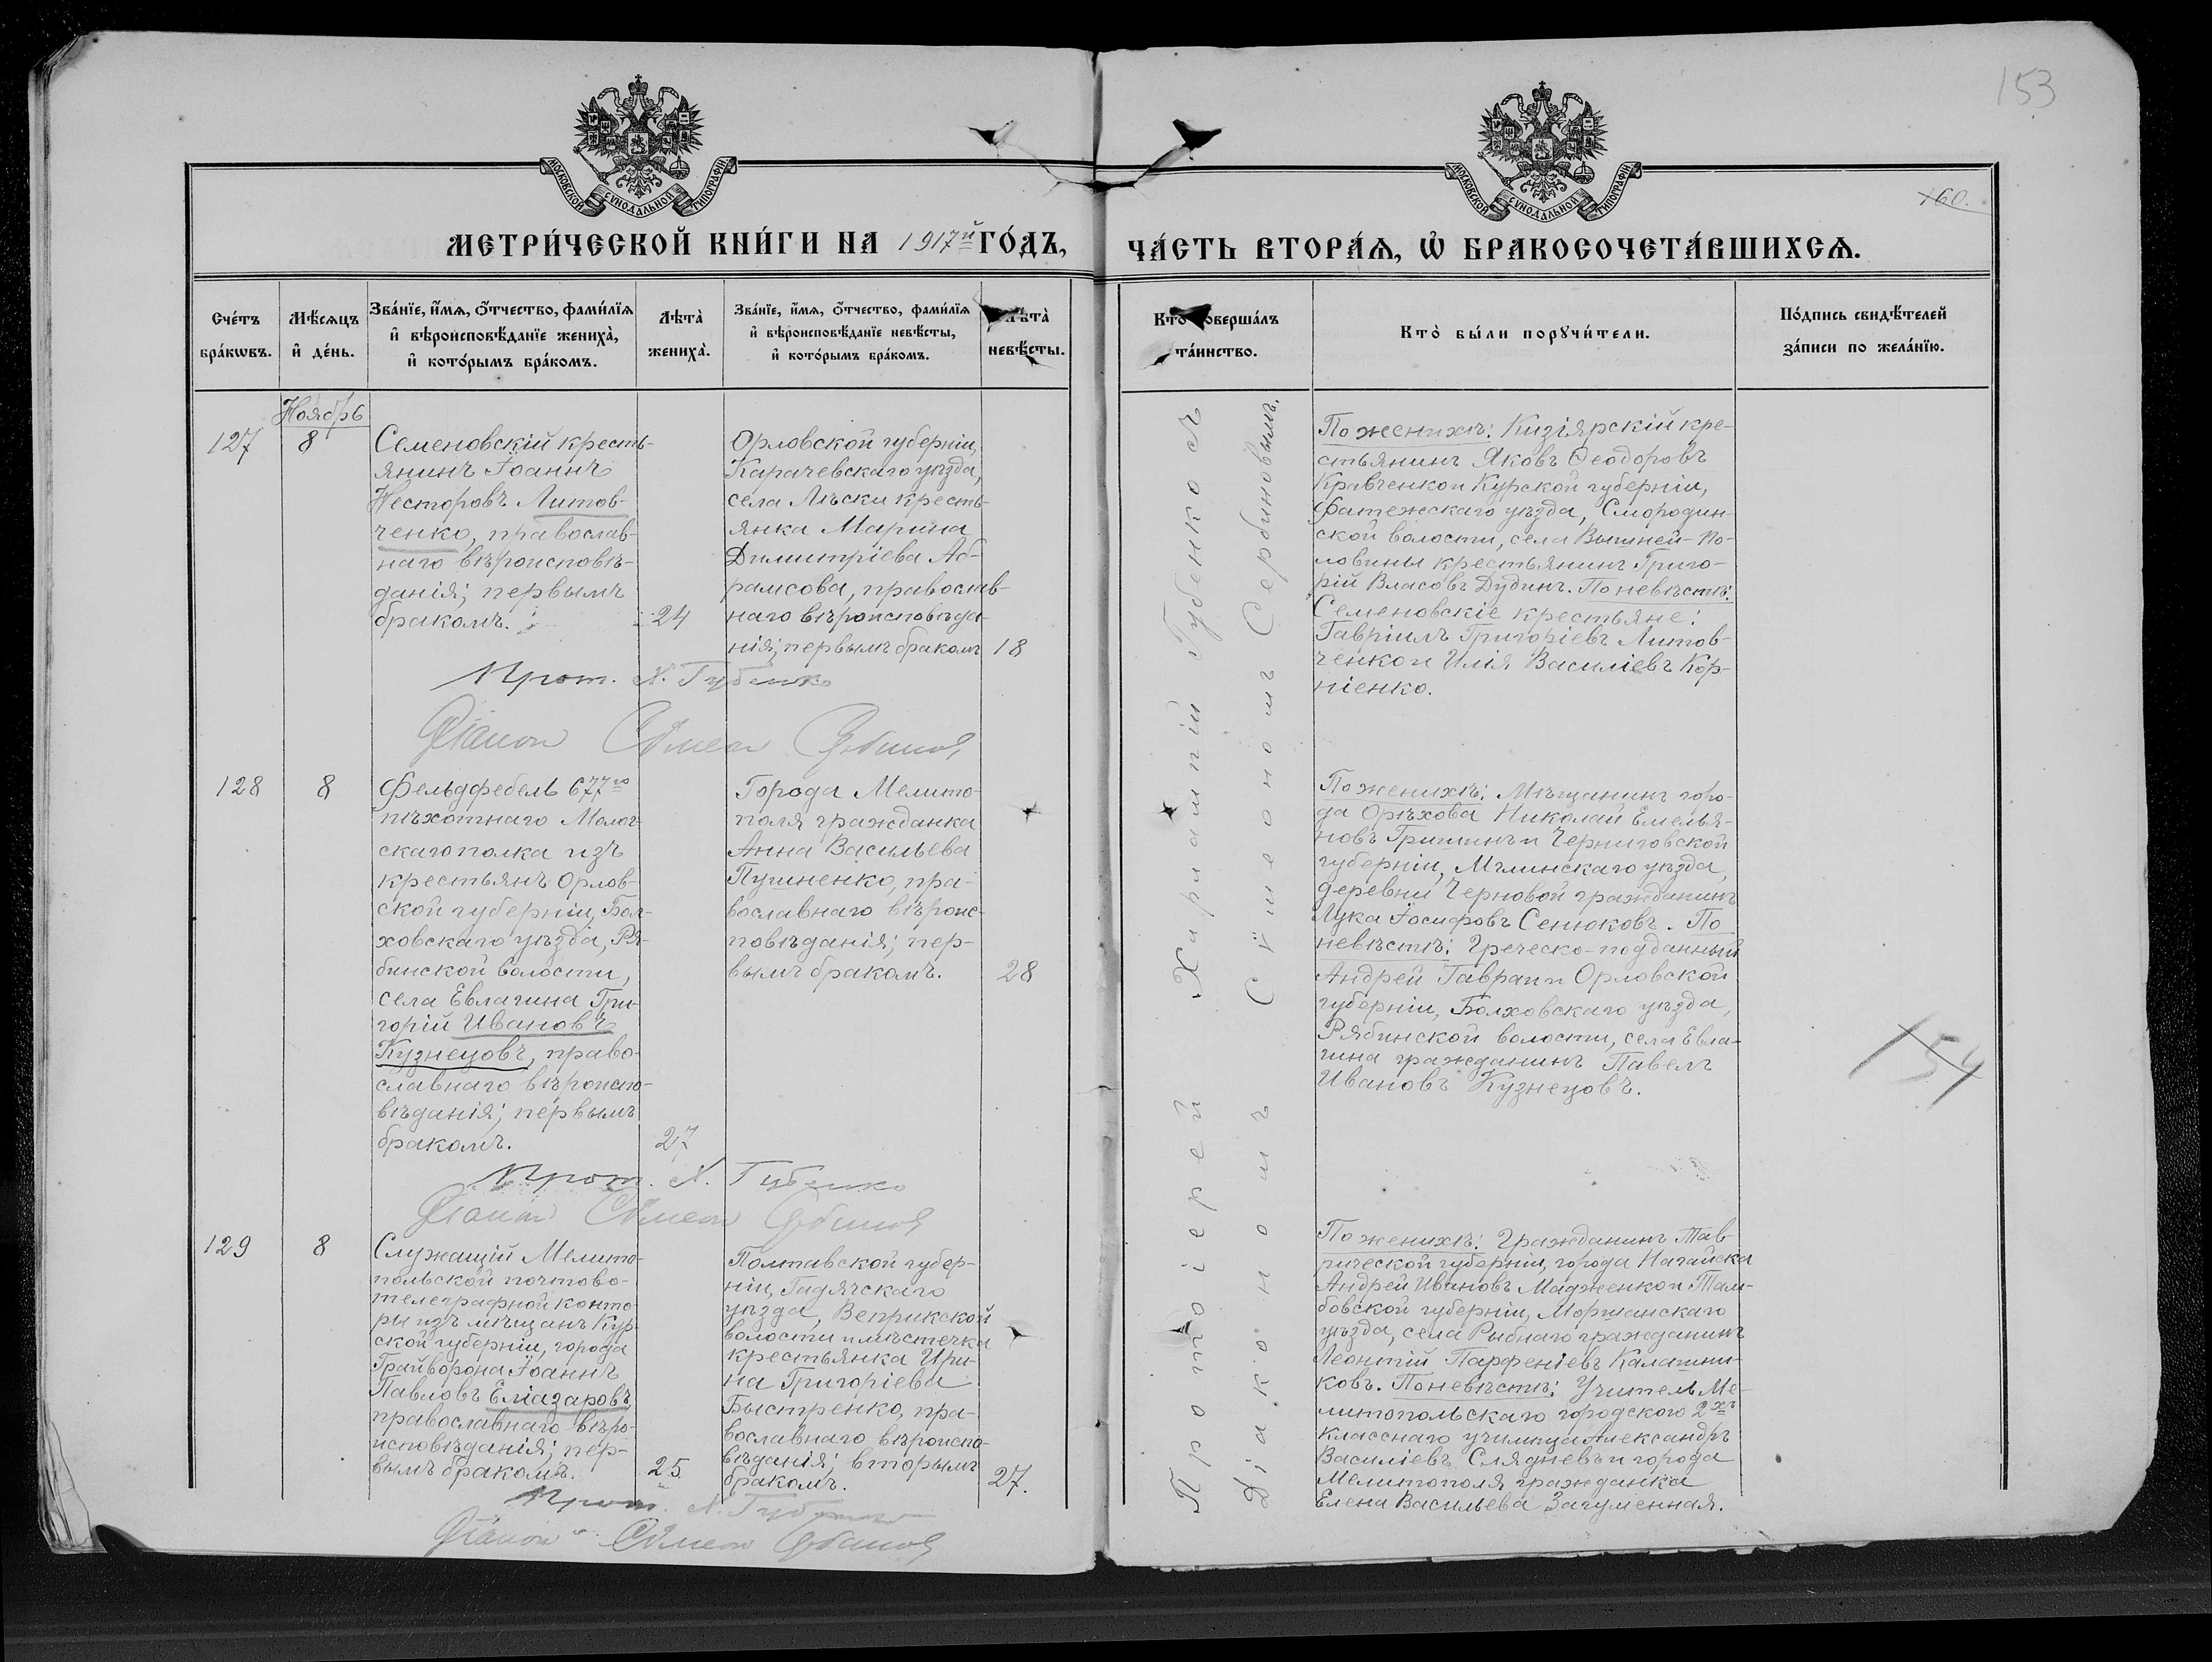 153
160.
МОСКОВСКОЙ СѴНОДАЛЬНОЙ ТИПОГРАФІИ
МОСКОВСКОЙ СѴНОДАЛЬНОЙ ТИПОГРАФІИ
МЕТРИ́ЧЕСКОЙ КНИ́ГИ НА 1917й ГО́ДЪ,
ЧА́СТЬ ВТОРА́Ѧ, Ѡ҆ БРАКОСОЧЕТА́ВШИХСѦ.
Сче́тъ
бра́кѡвъ.
Мѣ́сѧцъ
и҆ де́нь.
Зва́нїе, и҆́мѧ, ѻ҆́тчество, фами́лїѧ
и҆ вѣроисповѣ́данїе жениха̀,
и҆ кото́рымъ бра́комъ.
Лѣта̀
жениха̀.
Зва́нїе, и҆́мѧ, ѻ҆́тчество, фами́лїѧ
и҆ вѣроисповѣ́данїе невѣ́сты,
и҆ кото́рымъ бра́комъ.
Лѣта̀
невѣ́сты.
Кто̀ соверша́лъ
та́инство.
Кто̀ бы́ли порꙋчи́тели.
По́дпись свидѣ́телей
за́писи по жела́нїю.
Ноябрь
127
8
Семеновскій кресть-
янинъ Іоаннъ
Несторовъ Литов-
ченко, православ-
наго вѣроисповѣ-
данія; первымъ
бракомъ.
24
Орловской губерніи,
Карачевскаго уѣзда,
села Лѣски кресть-
янка Марина
Димитріева Аб-
рамсова, православ-
наго вѣроисповѣда-
нія; первымъ бракомъ
18
Прот. Х. Губенко
Діакон Сѵмеон Сербинов
По женихѣ: Кизіярскій кре-
стьянинъ Яковъ Ѳеодоровъ
Кравченко и Курской губерніи,
Фатежскаго уѣзда, Смородин-
ской волости, села Вышней-По-
ловины крестьянинъ Григо-
рій Власовъ Дудинъ. По невѣстѣ:
Семеновскіе крестьяне:
Гавріилъ Григоріевъ Литов-
ченко и Илія Василіевъ Кор-
ніенко.
128
8
Фельдфебель 677го
пѣхотнаго Молог-
скаго полка изъ
крестьянъ Орлов-
ской губерніи, Бол-
ховскаго уѣзда, Ря-
бинской волости,
села Евлагина Гри-
горій Ивановъ
Кузнецовъ, право-
славнаго вѣроиспо-
вѣданія; первымъ
бракомъ.
27
Города Мелито-
поля гражданка
Анна Васильева
Пушненко, пра-
вославнаго вѣроис-
повѣданія; пер-
вымъ бракомъ.
28
Прот. Х. Губенко
Діакон Сѵмеон Сербинов
По женихѣ: Мѣщанинъ горо-
да Орѣхова Николай Емелья-
новъ Гришинъ и Черниговской
губерніи, Мглинскаго уѣзда,
деревни Черновой гражданинъ
Лука Іосифовъ Сенюковъ. По
невѣстѣ: Греческо-подданный
Андрей Гаврап и Орловской
губерніи, Болховскаго уѣзда,
Рябинской волости, села Евла-
гина гражданинъ Павелъ
Ивановъ Кузнецовъ.
154
129
8
Служащій Мелито-
польской почтово-
телеграфной конто-
ры изъ мѣщанъ Кур-
ской губерніи, города
Грайворона Іоаннъ
Павловъ Еліазаровъ,
православнаго вѣро-
исповѣданія; пер-
вымъ бракомъ.
25
Полтавской губер-
ніи, Гадячскаго
уѣзда, Веприкской
волости и мѣстечка
крестьянка Ири-
на Григоріева
Быстренко, пра-
вославнаго вѣроиспо-
вѣданія; вторымъ
бракомъ.
27.
Прот. Х. Губенко
Діакон Сѵмеон Сербинов
По женихѣ: Гражданинъ Тав-
рической губерніи, города Нагайска
Андрей Ивановъ Мадженко и Там-
бовской губерніи, Моршанскаго
уѣзда, села Рыбнаго гражданинъ
Леонтій Парфеніевъ Калашни-
ковъ. По невѣстѣ: Учитель Ме-
литопольскаго городского 2хъ
класснаго училища Александръ
Василіевъ Слядневъ и города
Мелитополя гражданка
Елена Васильева Загуменная.
Протоіерей Харалампій Губенко съ
Діакономъ Сѵмеономъ Сербиновымъ.